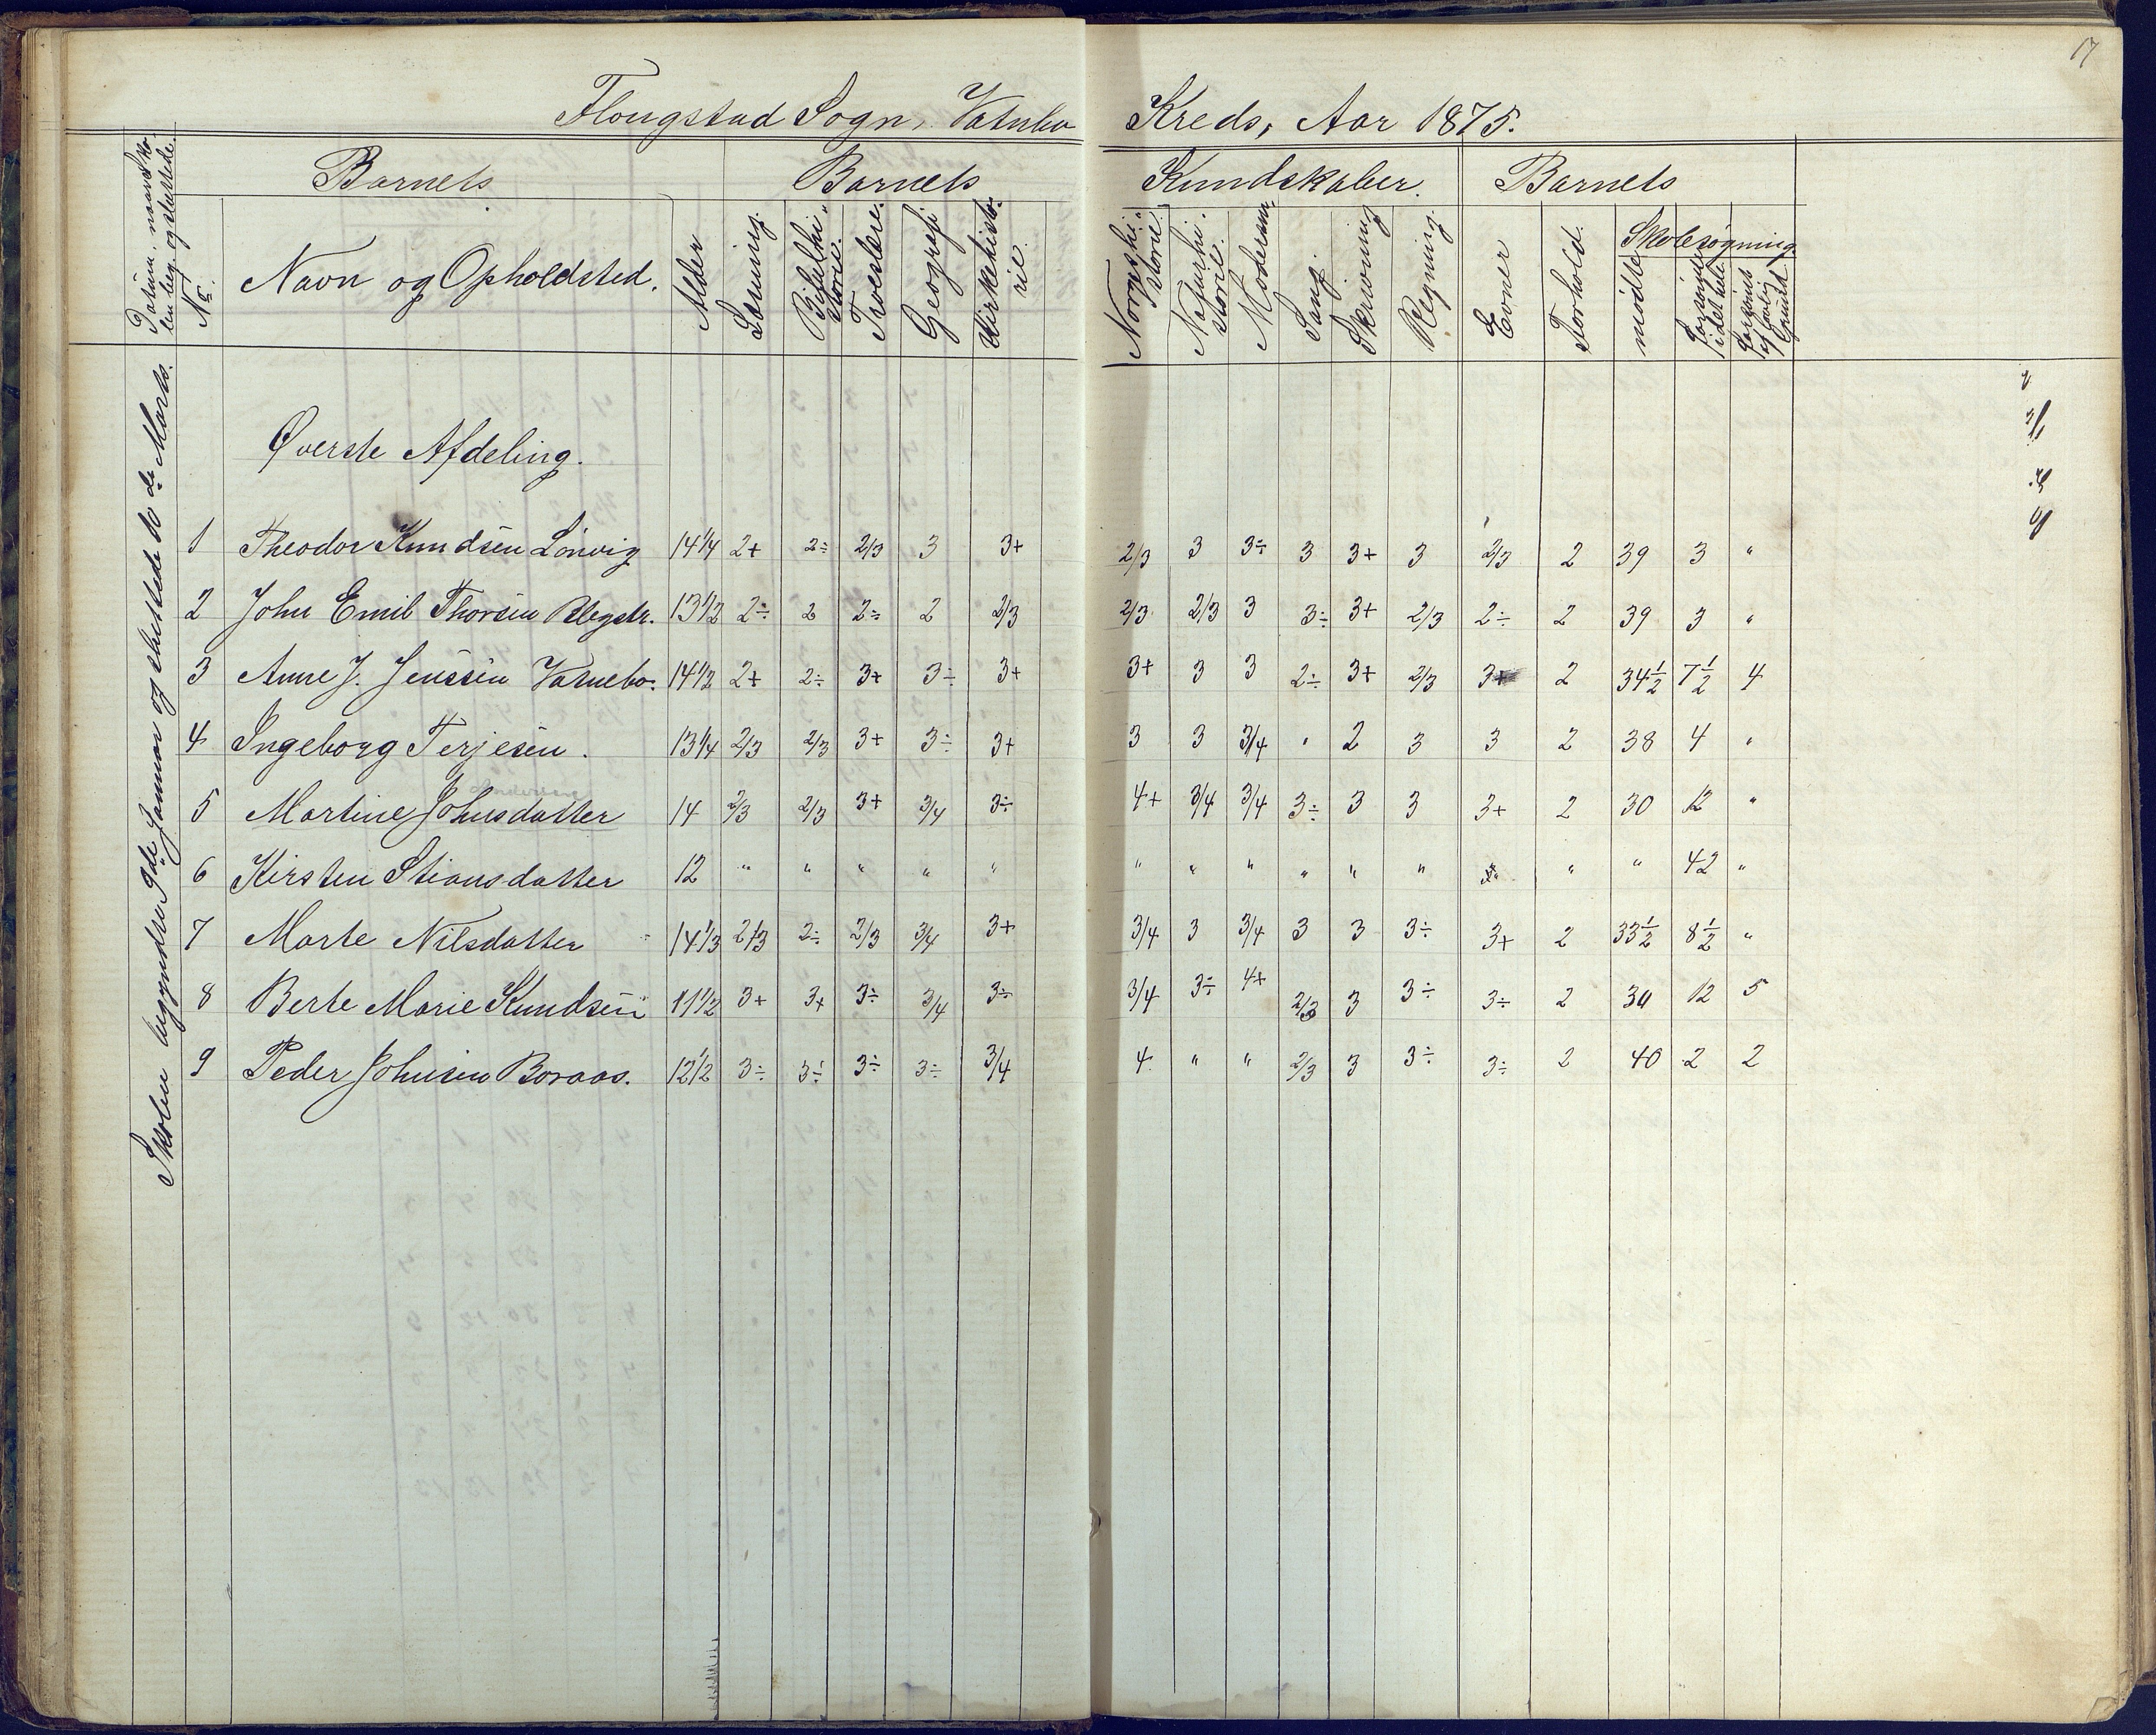 17
Flougstad Sogn, Vatnebo Kreds, Aar 1875.
Datum, naar Skolen beg. og sluttede.
No.
Barnets
Navn og Opholdsted.
Alder
Barnets Kundskaber.
Læsning.
Bibelhistorie.
Troeslære.
Geografi
Kirkehistorie.
Norgeshistorie.
Naturhistorie.
Modersm.
Sang.
Skrivning
Regning.
Barnets
Evner
Forhold.
Skolesøgning.
mødte
Forsømte i det hele
Forsømte af lovlig Grund
Skolen begyndte 9de Januar og sluttede 10de Marts.
Øverste Afdeling.
1 Theodor Knudsen Lønvig 14 1/4 2+ 2÷ 2/3 3 3+ 2/3 3 3÷ 3 3+ 3 2/3 2 39 3 "
2 John Emil Thorsen Blegstr. 13 1/2 2÷ 2 2÷ 2 2/3 2/3 2/3 3 3÷ 3+ 2/3 2÷ 2 39 3 "
3 Anne J. Jenssen Vatnebo. 14 1/2 2+ 2÷ 3+ 3÷ 3+ 3+ 3 3 2÷ 3+ 2/3 3+ 2 34 1/2 7 1/2 4
4 Ingeborg Terjesen. 13 1/4 2/3 2/3 3+ 3÷ 3+ 3 3 3/4 " 2 3 3 2 38 4 "
5 Martine Johnsdatter 14 2/3 2/3 3+ 3/4 3÷ 4+ 3/4 3/4 3÷ 3 3 3+ 2 30 12 "
6 Kirsten Stiansdatter 12 " " " " " " " " " " " " " " 42 "
7 Marte Nilsdatter 14 1/3 2/3 2÷ 2/3 3/4 3+ 3/4 3 3/4 3 3 3÷ 3+ 2 33 1/2 8 1/2 "
8 Berte Marie Knudsen 11 1/2 3+ 3+ 3÷ 3/4 3÷ 3/4 3÷ 4+ 2/3 3 3÷ 3÷ 2 30 12 5
9 Peder Johnsen Boraas. 12 1/2 3÷ 3÷ 3÷ 3÷ 3/4 4 " " 2/3 3 3÷ 3÷ 2 40 2 2